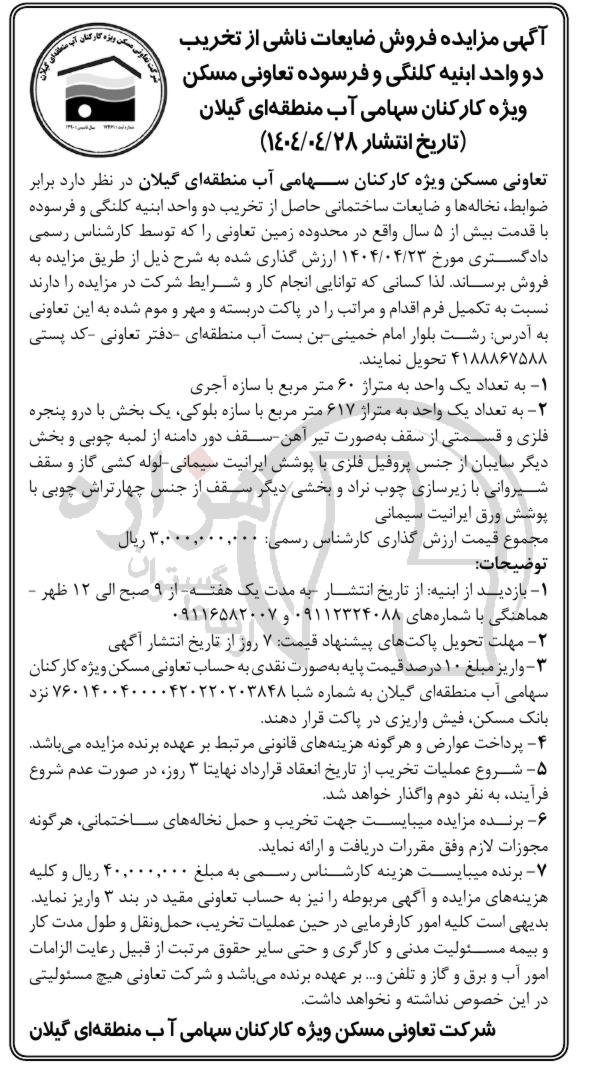 آگهی مزایده فروش ضایعات ناشی از تخریب
دو واحد ابنیه کلنگی و فرسوده تعاونی مسکن
ویژه کارکنان سهامی آب منطقه‌ای گیلان
(تاریخ انتشار ۱۴۰۴/۰۴/۲۸)
شرکت تعاونی مسکن ویژه کارکنان آب منطقه‌ای گیلان
تعاونی مسکن ویژه کارکنان سهامی آب منطقه‌ای گیلان در نظر دارد برابر
ضوابط، نخاله‌ها و ضایعات ساختمانی حاصل از تخریب دو واحد ابنیه کلنگی و فرسوده
با قدمت بیش از ۵ سال واقع در محدوده زمین تعاونی را که توسط کارشناس رسمی
دادگستری مورخ ۱۴۰۴/۰۴/۲۳ ارزش گذاری شده به شرح ذیل از طریق مزایده به
فروش برساند. لذا کسانی که توانایی انجام کار و شرایط شرکت در مزایده را دارند
نسبت به تکمیل فرم اقدام و مراتب را در پاکت دربسته و مهر و موم شده به این تعاونی
به آدرس: رشت بلوار امام خمینی-بن بست آب منطقه‌ای -دفتر تعاونی -کد پستی
۴۱۸۸۸۶۷۵۸۸ تحویل نمایند.
۱- به تعداد یک واحد به متراژ ۶۰ متر مربع با سازه آجری
۲- به تعداد یک واحد به متراژ ۶۱۷ متر مربع با سازه بلوکی، یک بخش با درو پنجره
فلزی و قسمتی از سقف به‌صورت تیر آهن-سقف دور دامنه از لمبه چوبی و بخش
دیگر سایبان از جنس پروفیل فلزی با پوشش ایرانیت سیمانی-لوله کشی گاز و سقف
شیروانی با زیرسازی چوب نراد و بخشی دیگر سقف از جنس چهارتراش چوبی با
پوشش ورق ایرانیت سیمانی
مجموع قیمت ارزش گذاری کارشناس رسمی: ۳,۰۰۰,۰۰۰,۰۰۰ ریال
توضیحات:
۱- بازدید از ابنیه: از تاریخ انتشار -به مدت یک هفته- از ۹ صبح الی ۱۲ ظهر -
هماهنگی با شماره‌های ۰۹۱۱۲۳۲۴۰۸۸ و ۰۹۱۱۶۵۸۲۰۰۷
۲- مهلت تحویل پاکت‌های پیشنهاد قیمت: ۷ روز از تاریخ انتشار آگهی
۳-واریز مبلغ ۱۰درصد قیمت پایه به‌صورت نقدی به حساب تعاونی مسکن ویژه کارکنان
سهامی آب منطقه‌ای گیلان به شماره شبا ۷۶۰۱۴۰۰۴۰۰۰۰۴۲۰۲۲۰۲۰۳۸۴۸ نزد
بانک مسکن، فیش واریزی در پاکت قرار دهند.
۴- پرداخت عوارض و هرگونه هزینه‌های قانونی مرتبط بر عهده برنده مزایده می‌باشد.
۵- شروع عملیات تخریب از تاریخ انعقاد قرارداد نهایتا ۳ روز، در صورت عدم شروع
فرآیند، به نفر دوم واگذار خواهد شد.
۶- برنده مزایده میبایست جهت تخریب و حمل نخاله‌های ساختمانی، هرگونه
مجوزات لازم وفق مقررات دریافت و ارائه نماید.
۷- برنده میبایست هزینه کارشناس رسمی به مبلغ ۴۰,۰۰۰,۰۰۰ ریال و کلیه
هزینه‌های مزایده و آگهی مربوطه را نیز به حساب تعاونی مقید در بند ۳ واریز نماید.
بدیهی است کلیه امور کارفرمایی در حین عملیات تخریب، حمل‌ونقل و طول مدت کار
و بیمه مسئولیت مدنی و کارگری و حتی سایر حقوق مرتبت از قبیل رعایت الزامات
امور آب و برق و گاز و تلفن و... بر عهده برنده می‌باشد و شرکت تعاونی هیچ مسئولیتی
در این خصوص نداشته و نخواهد داشت.
شرکت تعاونی مسکن ویژه کارکنان سهامی آب منطقه‌ای گیلان
هزاره
گستران